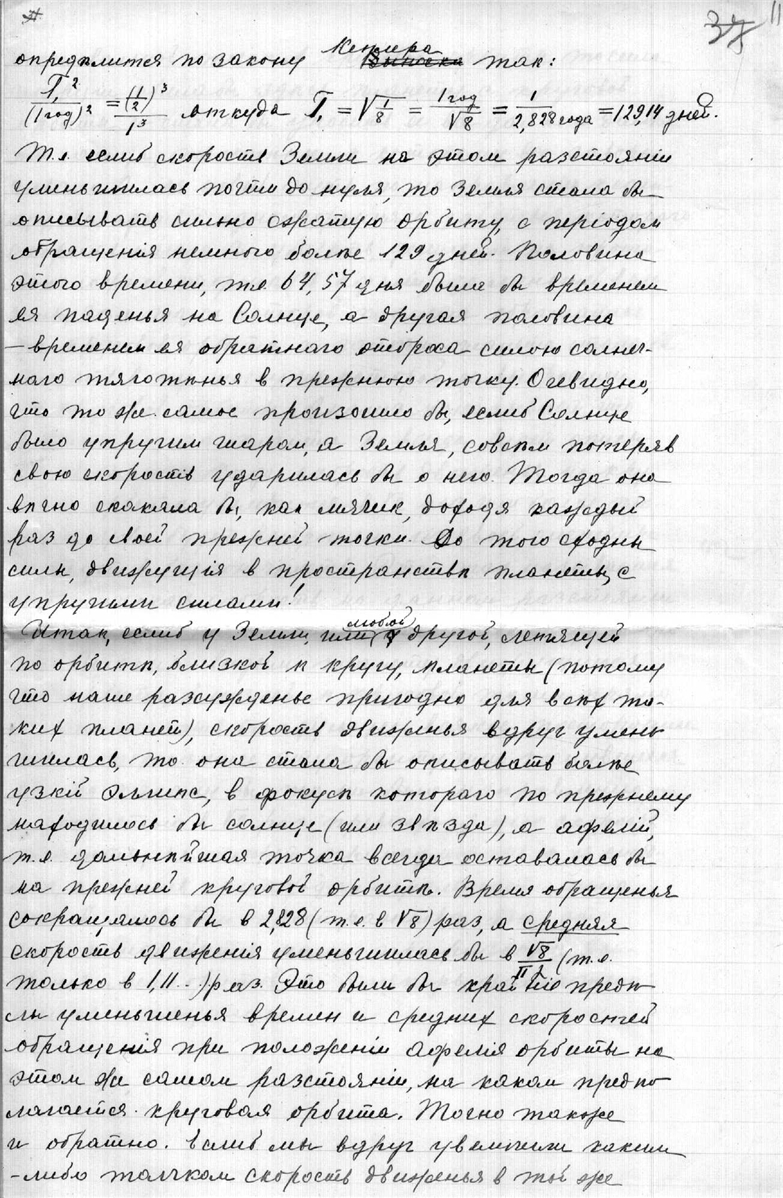 37 11
опредѣлится по закону Кеплера так:
T₁²/(1 год)² = (1/2)³/1³ откуда T₁ = √1/8 = 1 год/√8 = 1/2,828 года = 129,14 дней.
Т.е. еслиб скорость Земли на этом разстояніи
уменьшилась почти до нуля, то Земля стала бы
описывать сильно сжатую орбиту, с періодом
обращенія немного болѣе 129 дней. Половина
этого времени, т.е 64,57 дня была бы временем
ея паденья на Солнце, а другая половина
– временем ея обратнаго отброса силою солнеч-
наго тяготѣнья в прежнюю точку. Очевидно,
что то же самое произошло бы, еслиб Солнце
было упругим шаром, а Земля, совсѣм потеряв
свою скорость ударилась бы о него. Тогда она
вѣчно скакала бы, как мячик, доходя каждый
раз до своей прежней точки. До того сходны
силы, движущія в пространствѣ планеты, с
упругими силами!
Итак, еслиб у Земли, или любой другой, летящей
по орбитѣ, близкой к кругу, планеты (потому
что наше разсужденье пригодно для всѣх та-
ких планет), скорость движенья вдруг умень
шилась, то она стала бы описывать болѣе
узкій эллипс, в фокусѣ котораго по прежнему
находилось бы солнце (или звѣзда), а афелій,
т.е. дальнѣйшая точка всегда оставалась бы
на прежней круговой орбитѣ. Время обращенья
сокращалось бы в 2,828 (т.е. в √8) раз, а средняя
скорость движенія уменьшилась бы в √8/π (т.е.
только в 1,11...) раз. Это были бы крайніе предѣ-
лы уменьшенья времен и средних скоростей
обращенія при положеніи афелія орбиты на
этом же самом разстояніи, на каком предпо
лагается круговая орбита. Точно также
и обратно. Еслиб мы вдруг увеличили каким
-либо толчком скорость движенья в той же